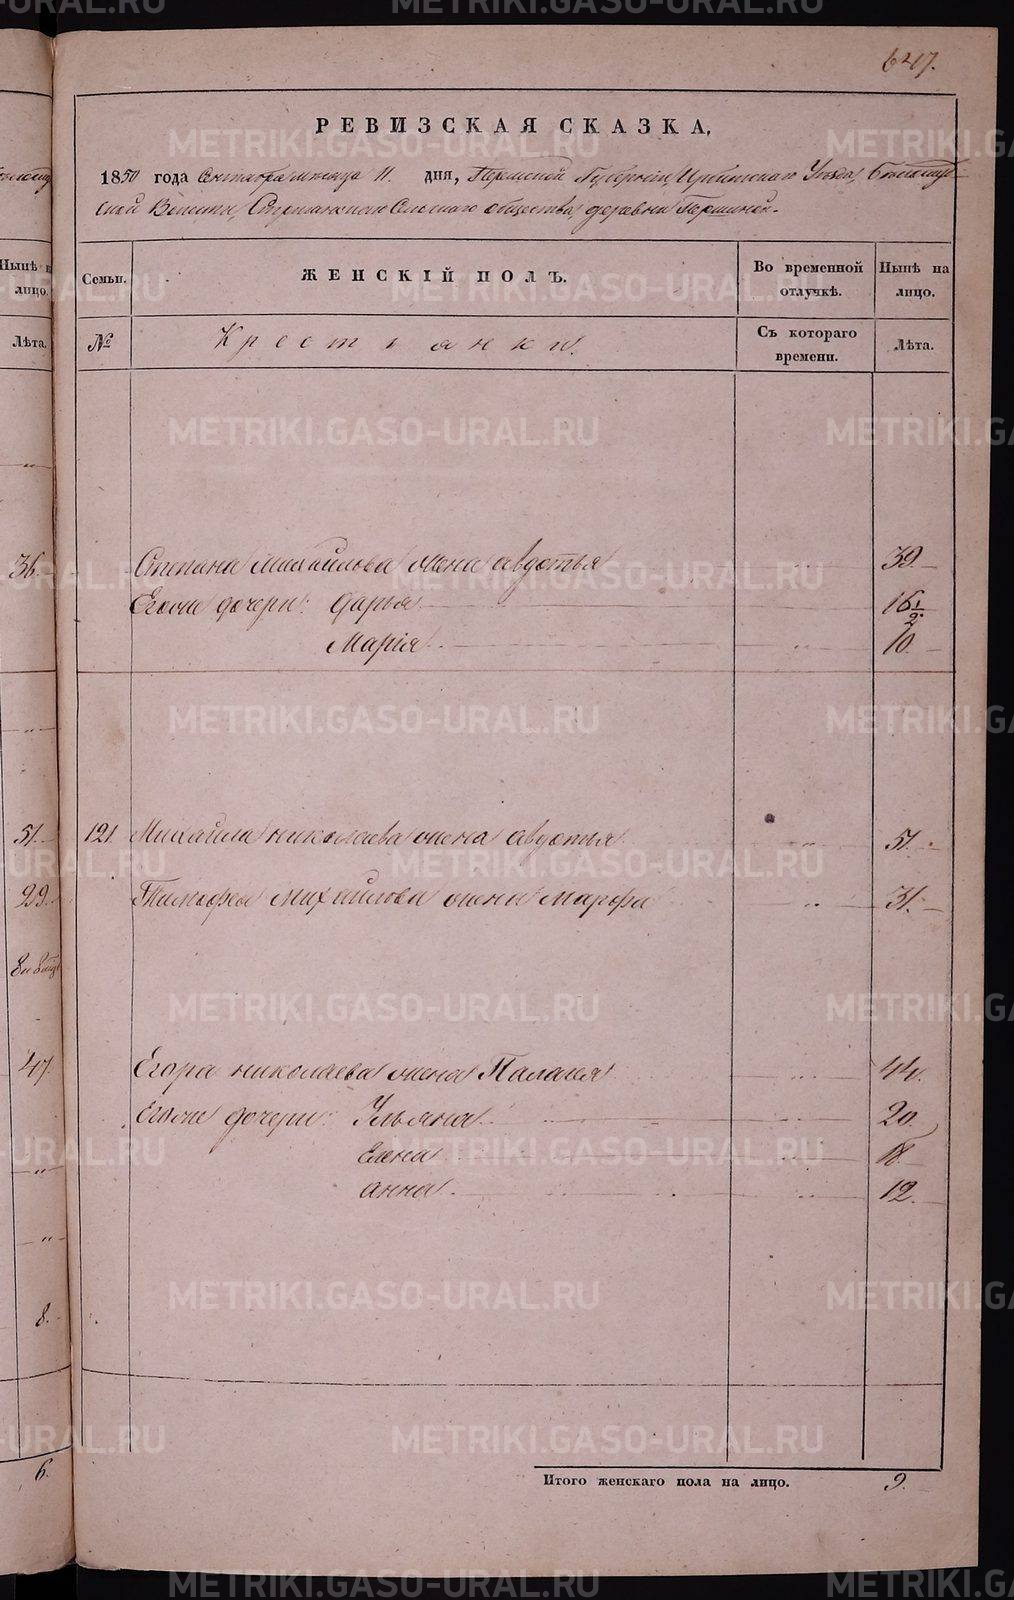 647.
РЕВИЗСКАЯ СКАЗКА,
1850 года Октября месяца 11. дня, Пермской Губерніи, Ирбитскаго Уѣзда,
ской Волости, Сельскаго общества деревни
Нынѣ на лицо.
Семьи.
ЖЕНСКІЙ ПОЛЪ.
Во временной отлучкѣ.
Нынѣ на лицо.
Лѣта.
№
Крестьянки.
Съ котораго времени.
Лѣта.
36. Степана Михайлова жена Авдотья 39.
Егоже дочери: Дарья 16 1/2.
Марія 10.
51. 121. Михайла Николаева жена Авдотья 51.
29. Тимофея Михайлова жена Марфа 31.
47. Егора Николаева жена Палагея 44.
Егоже дочери: Ульяна 20.
Елена 18
Анна 12.
8.
6.
Итого женскаго пола на лицо. 9.
METRIKI.GASO-URAL.RU